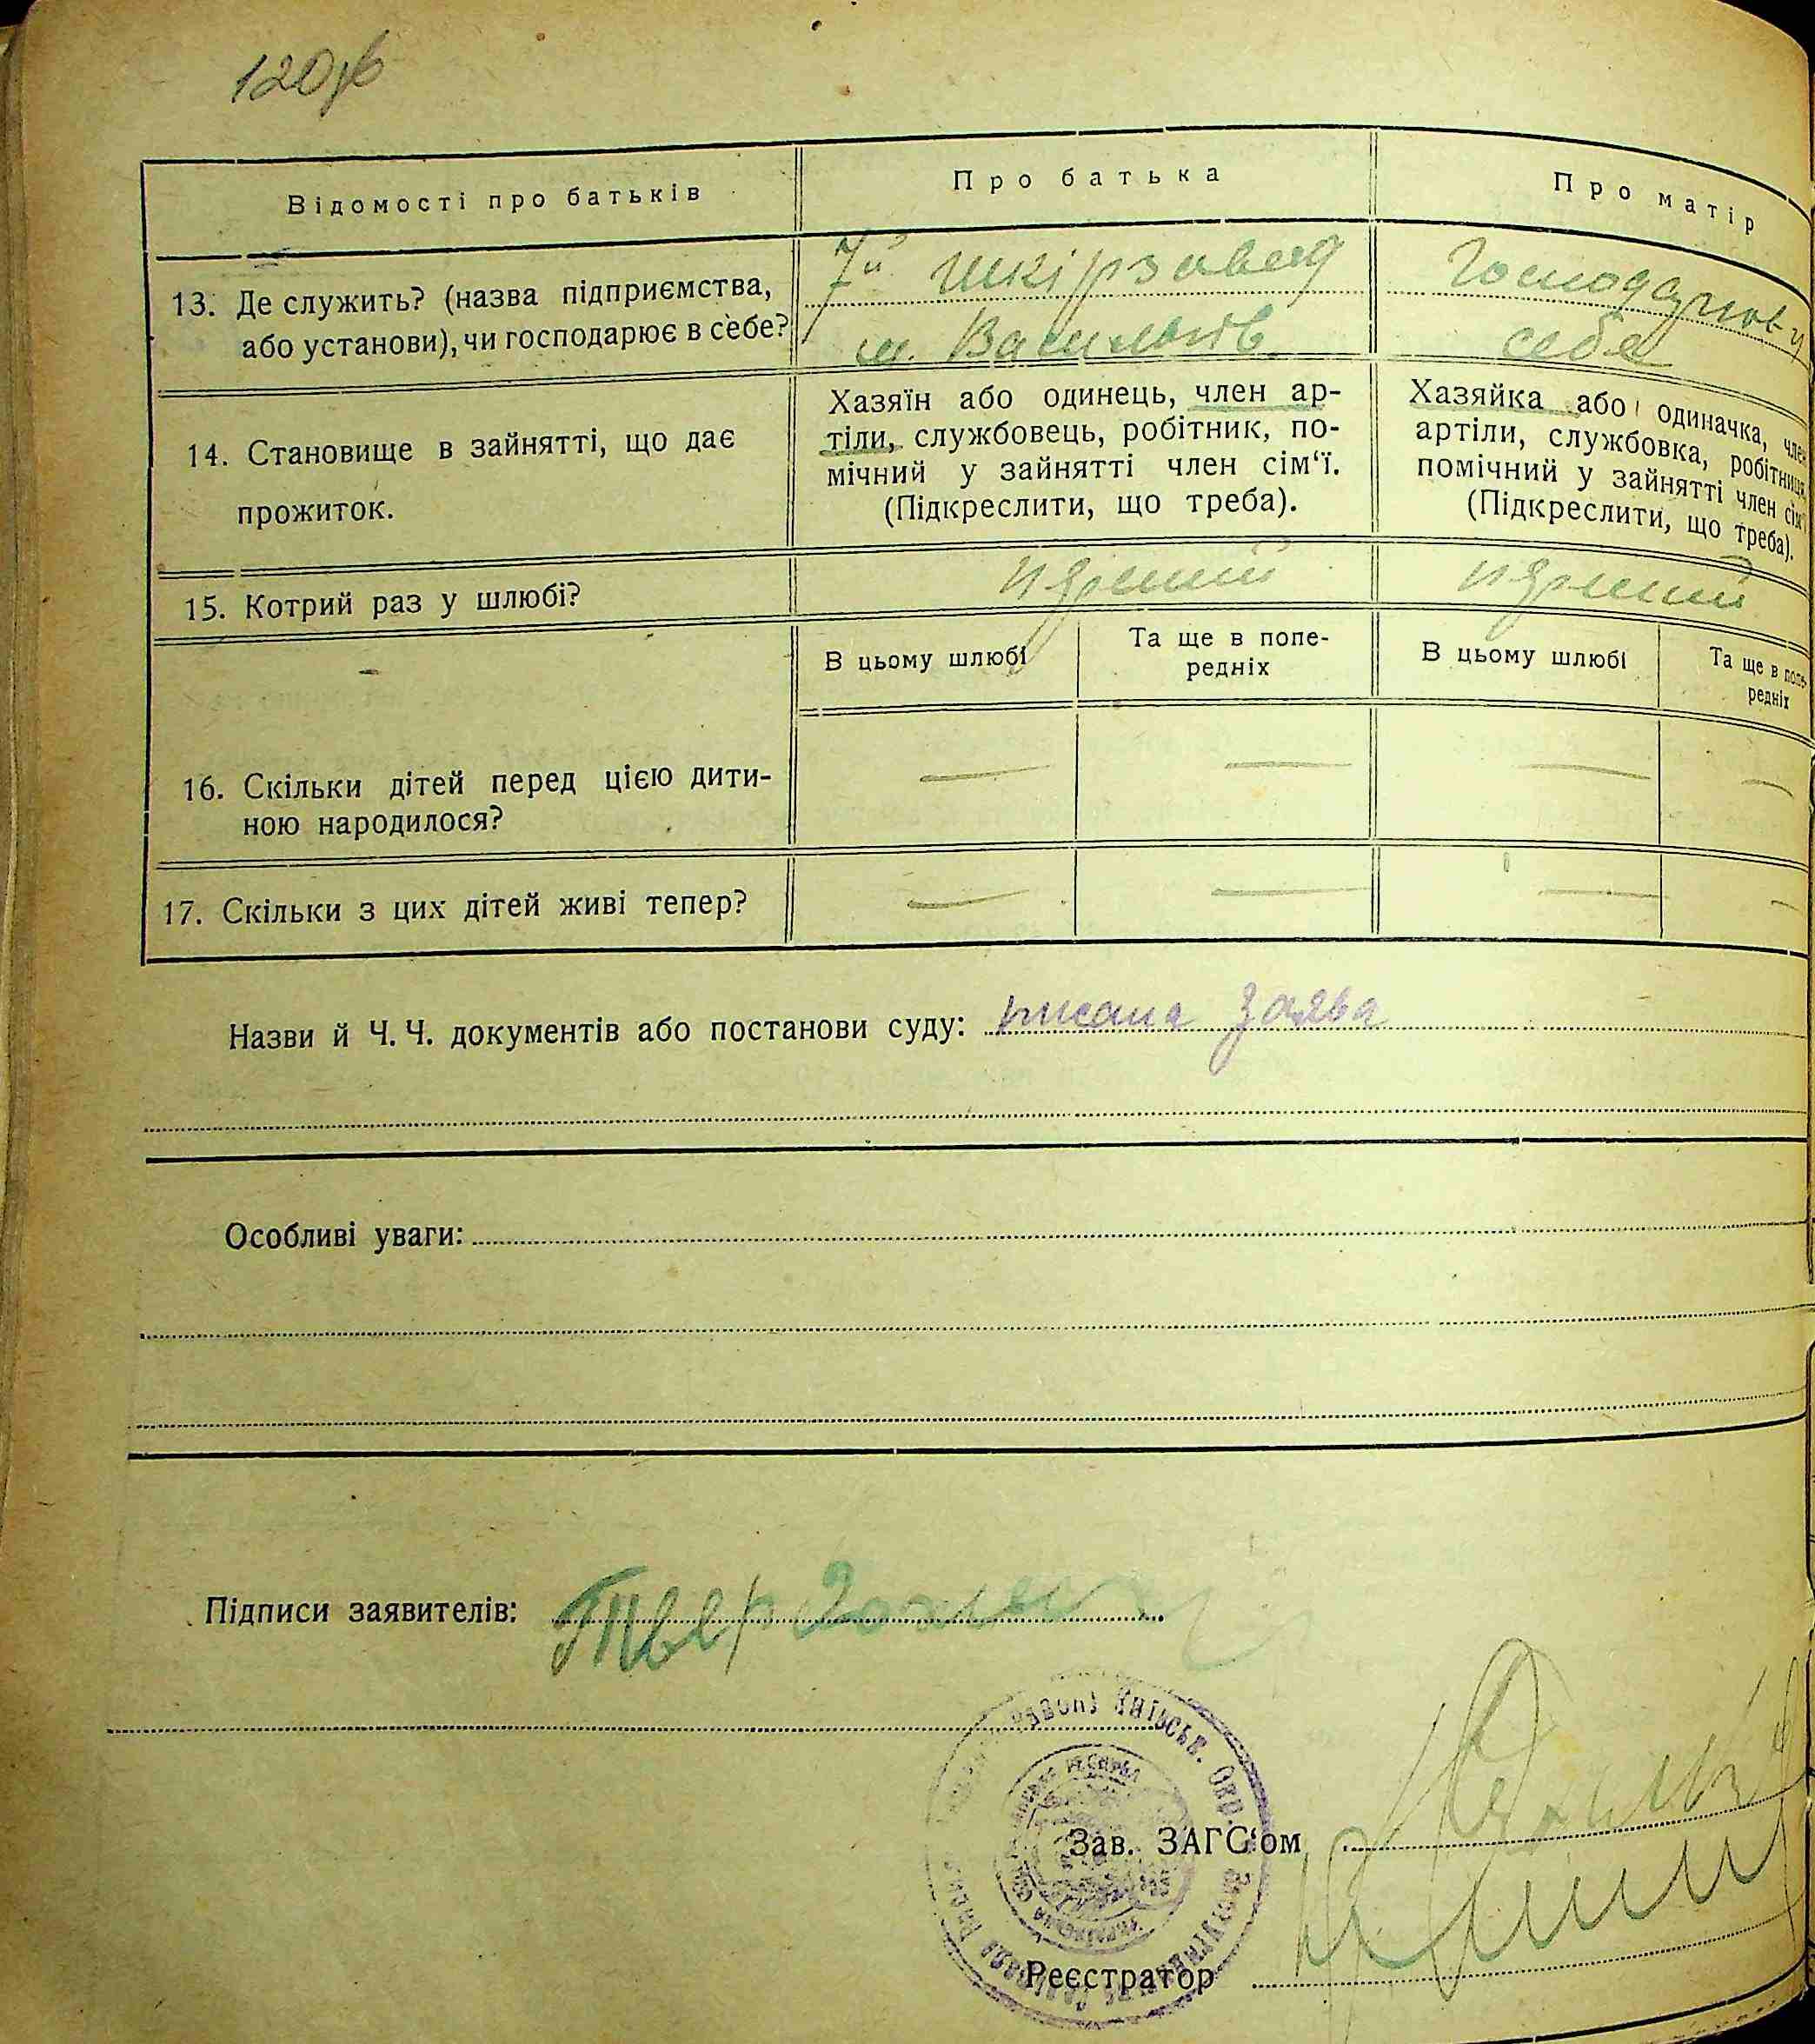 120
Відомості про батьків
Про батька
Про матір
13. Де служить? (назва підприємства,
або установи), чи господарює в себе?
7й шкірзавод
м. Васильків
Господарює у
себе
14. Становище в зайнятті, що дає
прожиток.
Хазяїн або одинець, член ар-
тіли, службовець, робітник, по-
мічний у зайнятті член сім‘ї.
(Підкреслити, що треба).
Хазяйка або одиначка, член
артіли, службовка, робітниця,
помічний у зайнятті член сім‘ї
(Підкреслити, що треба).
15. Котрий раз у шлюбі?
перший
перший
В цьому шлюбі
Та ще в попе-
редніх
В цьому шлюбі
Та ще в попе-
редніх
16. Скільки дітей перед цією дити-
ною народилося?
— — — —
17. Скільки з цих дітей живі тепер?
— — — —
Назви й Ч. Ч. документів або постанови суду: писана заява
Особливі уваги:
Підписи заявителів:
району Київськ. Окр.
Зав. ЗАГС‘ом
Реєстратор